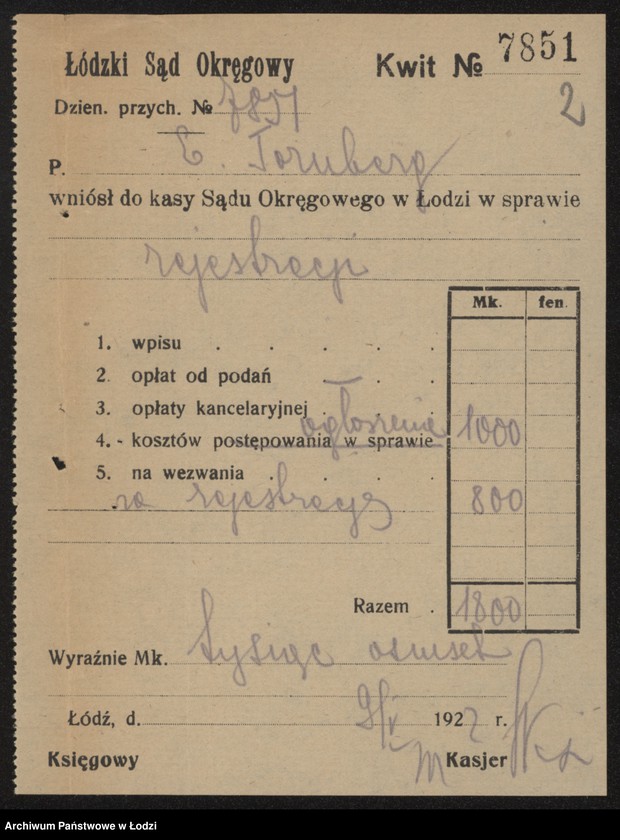 Łódzki Sąd Okręgowy Kwit № 7851
Dzien. przych. № 7851 2
P. E. Tornberg
wniósł do kasy Sądu Okręgowego w Łodzi w sprawie
rejestracji
Mk. fen.
1. wpisu . . . . .
2. opłat od podań . . .
3. opłaty kancelaryjnej . . .
ogłoszenie 1000
4. - kosztów postępowania w sprawie
5. na wezwania . . . .
za rejestrację 800
Razem . 1800
Wyraźnie Mk. tysiąc osiemset
Łódź, d. 9/V 1922 r.
Księgowy Kasjer
Archiwum Państwowe w Łodzi